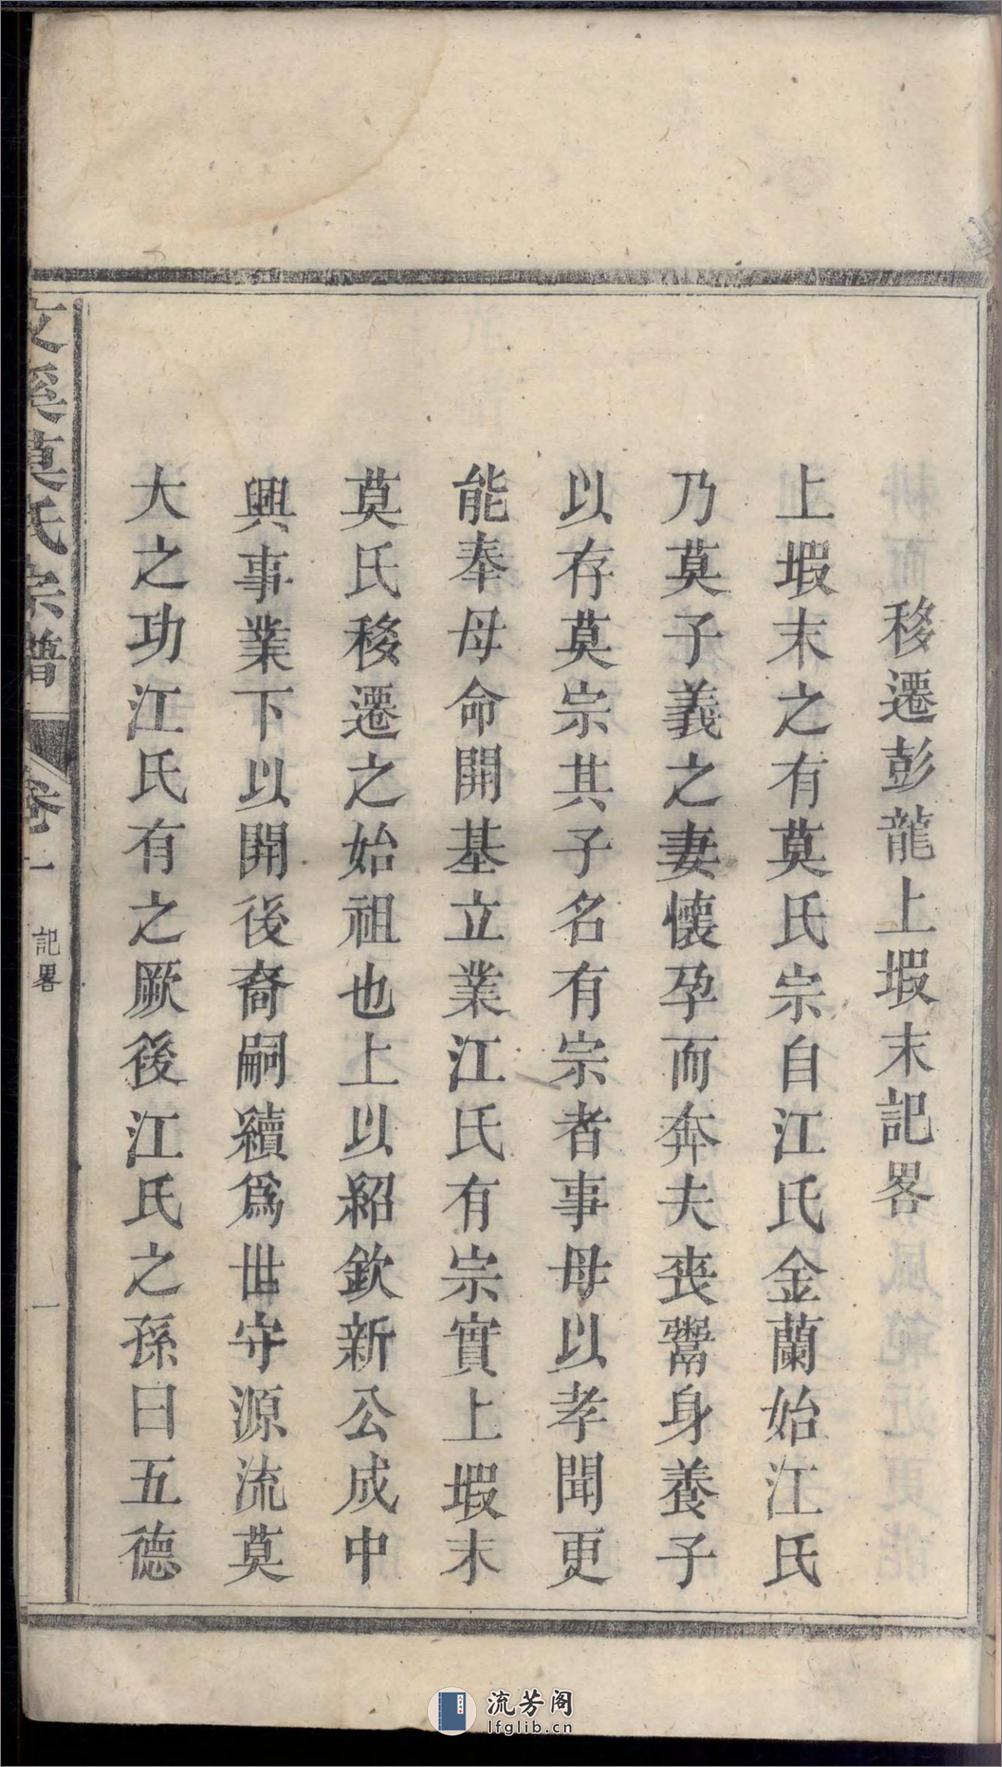 移遷彭龍上堨末記畧
上堨末之有莫氏宗自江氏金蘭始江氏
乃莫子義之妻懷孕而奔夫喪鬻身養子
以存莫宗其子名有宗者事母以孝聞更
能奉母命開基立業江氏有宗實上堨末
莫氏移遷之始祖也上以紹欽新公成中
興事業下以開後裔嗣續爲世守源流莫
大之功江氏有之厥後江氏之孫曰五德
文溪莫氏宗譜 卷一 記畧 一
流芳阁
lfglib.cn